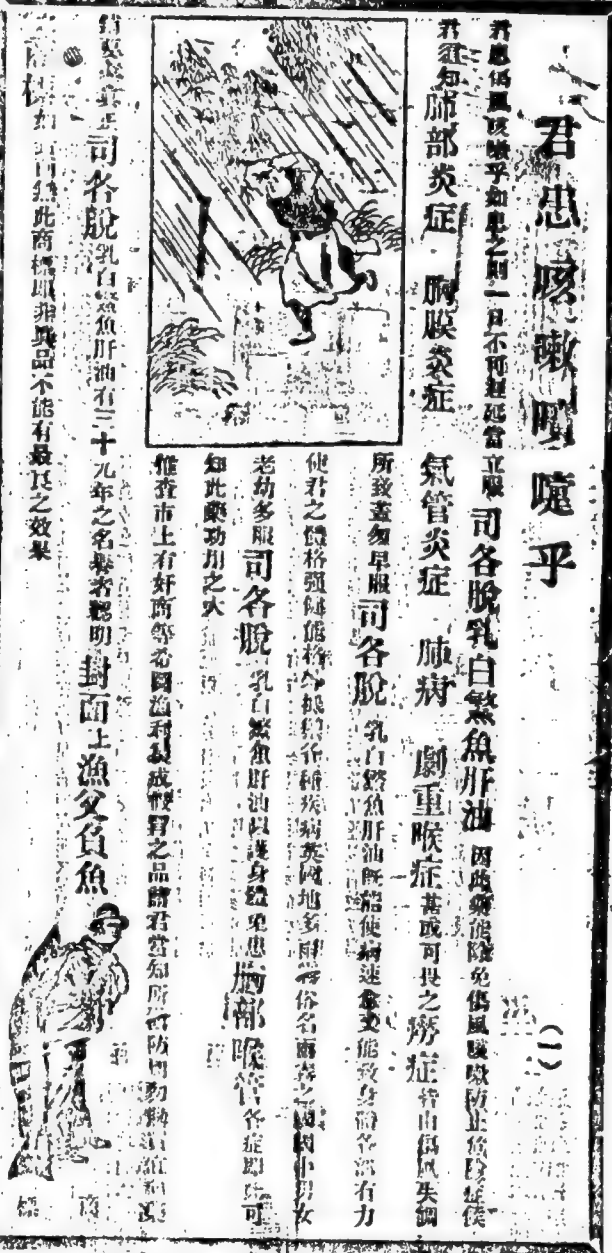 君患咳嗽噴嚏乎
(一)
君患傷風咳嗽乎如患之則一日不可遲延當立服司各脫乳白鰵魚肝油因此藥能除免傷風咳嗽防止危險症候
君須知肺部炎症 胸膜炎症 氣管炎症 肺病 劇重喉症甚或可畏之癆症皆由傷風失調
所致蓋及早服司各脫乳白鰵魚肝油既能使病速愈又能致身體各部有力
使君之體格強健能格外抵禦各種疾病英國地多雨霧俗名雨霧之國國中男女
老幼多服司各脫乳白鰵魚肝油以護身體免患胸部喉管各症即此可
知此藥功用之大
惟查市上有奸商等希圖漁利製成假冒之品諸君當知所當防
司各脫乳白鰵魚肝油有三十九年之名譽者認明封面上漁父負魚
商標如 無此商標即非真品不能有最良之效果
商標